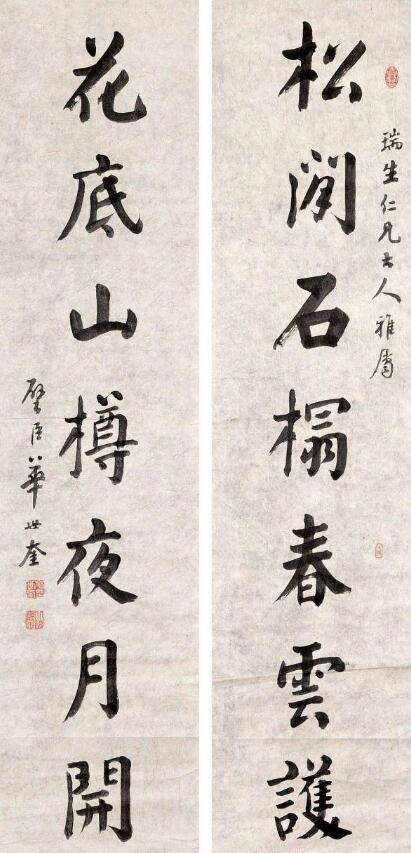 瑞生仁兄大人雅屬
松閒石榻春雲護
花底山樽夜月開
璧臣華世奎